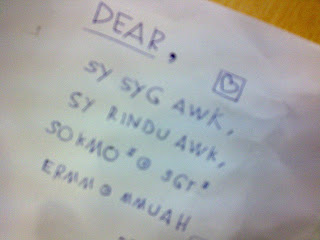 DEAR,
SY SYG AWK,
SY RINDU AWK,
SOKMO² @ SGT²
ERMM @ MMUAH